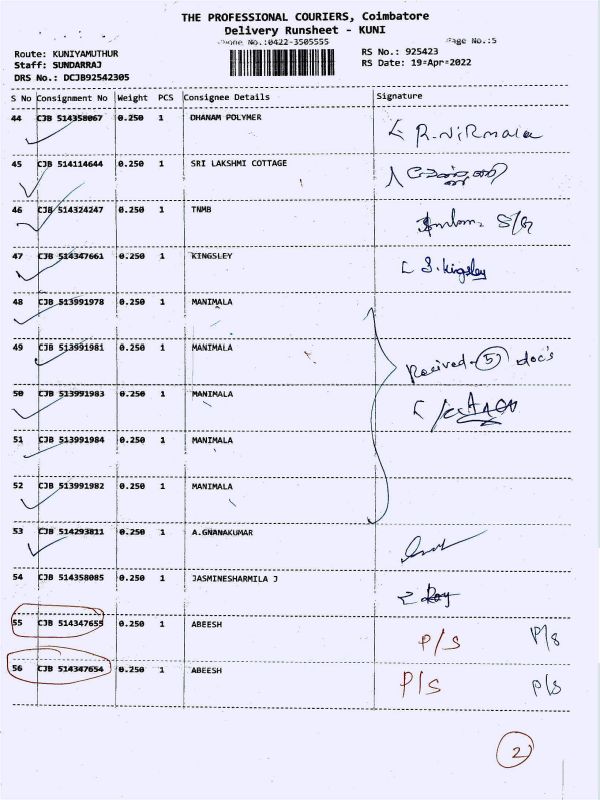 THE PROFESSIONAL COURIERS, Coimbatore
Delivery Runsheet - KUNI
Phone No.:0422-3505555
Page No.:5
Route: KUNIYAMUTHUR
RS No.: 925423
Staff: SUNDARRAJ
RS Date: 19-Apr-2022
DRS No.: DCJB92542305
S No Consignment No Weight PCS Consignee Details Signature
44 CJB 514358067 0.250 1 DHANAM POLYMER R.NiRmala
45 CJB 514114644 0.250 1 SRI LAKSHMI COTTAGE
46 CJB 514324247 0.250 1 TNMB
47 CJB 514347661 0.250 1 KINGSLEY S.Kingsley
48 CJB 513991978 0.250 1 MANIMALA
49 CJB 513991981 0.250 1 MANIMALA Recived 5 doc's
50 CJB 513991983 0.250 1 MANIMALA
51 CJB 513991984 0.250 1 MANIMALA
52 CJB 513991982 0.250 1 MANIMALA
53 CJB 514293811 0.250 1 A.GNANAKUMAR
54 CJB 514358085 0.250 1 JASMINESHARMILA J
55 CJB 514347655 0.250 1 ABEESH P/S P/s
56 CJB 514347654 0.250 1 ABEESH P/S P/s
2